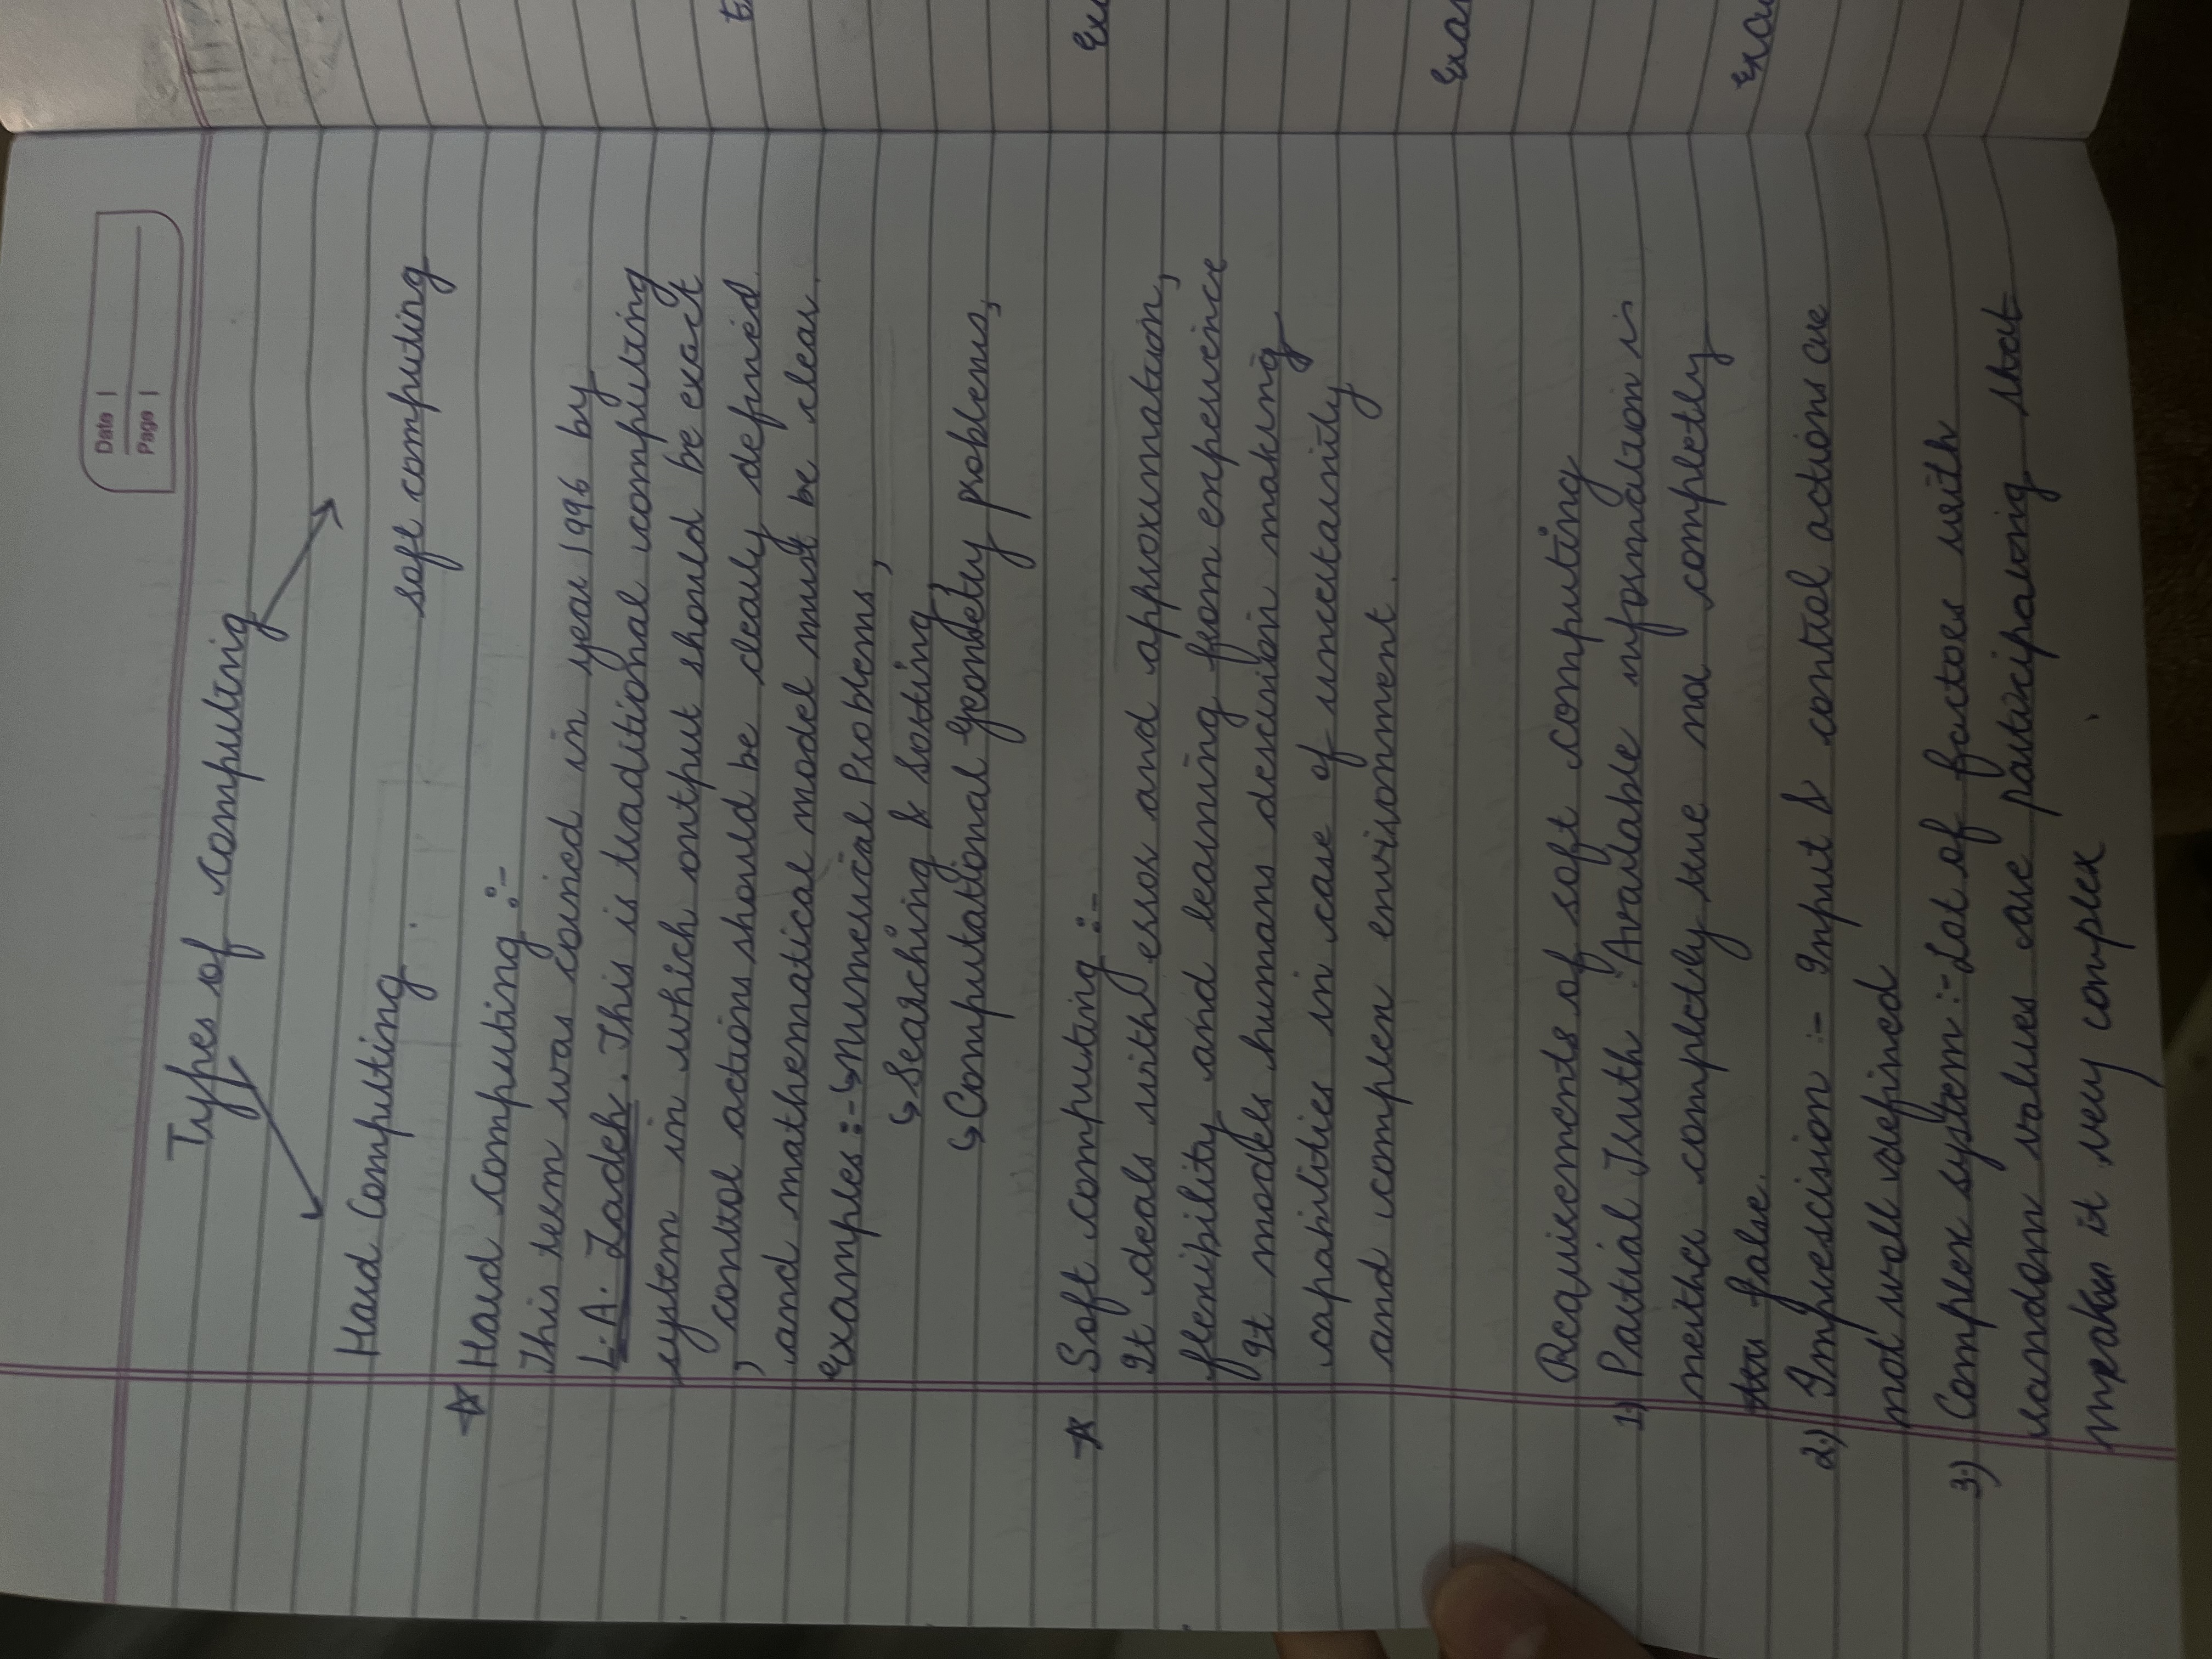 Date |
Page |
Types of computing
Hard Computing
soft computing
☆ Hard computing :-
This term was coined in year 1996 by
L.A. Zadeh. This is traditional computing
system in which output should be exact
, control actions should be clearly defined
and mathematical model must be clear.
examples :- ↳ Numerical Problems,
↳ Searching & Sorting,
↳ Computational Geometry problems,
☆ Soft computing :-
It deals with error and approximation,
flexibility and learning from experience
It models humans descision making
capabilities in case of uncertainity
and complex environment.
Requirements of soft computing
1) Partial Truth :- Available information is
neither completly true nor completly
false.
2.) Imprescision :- Input & control actions are
not well defined
3.) Complex system :- Lot of factors with
random values are participating that
makes it very complex